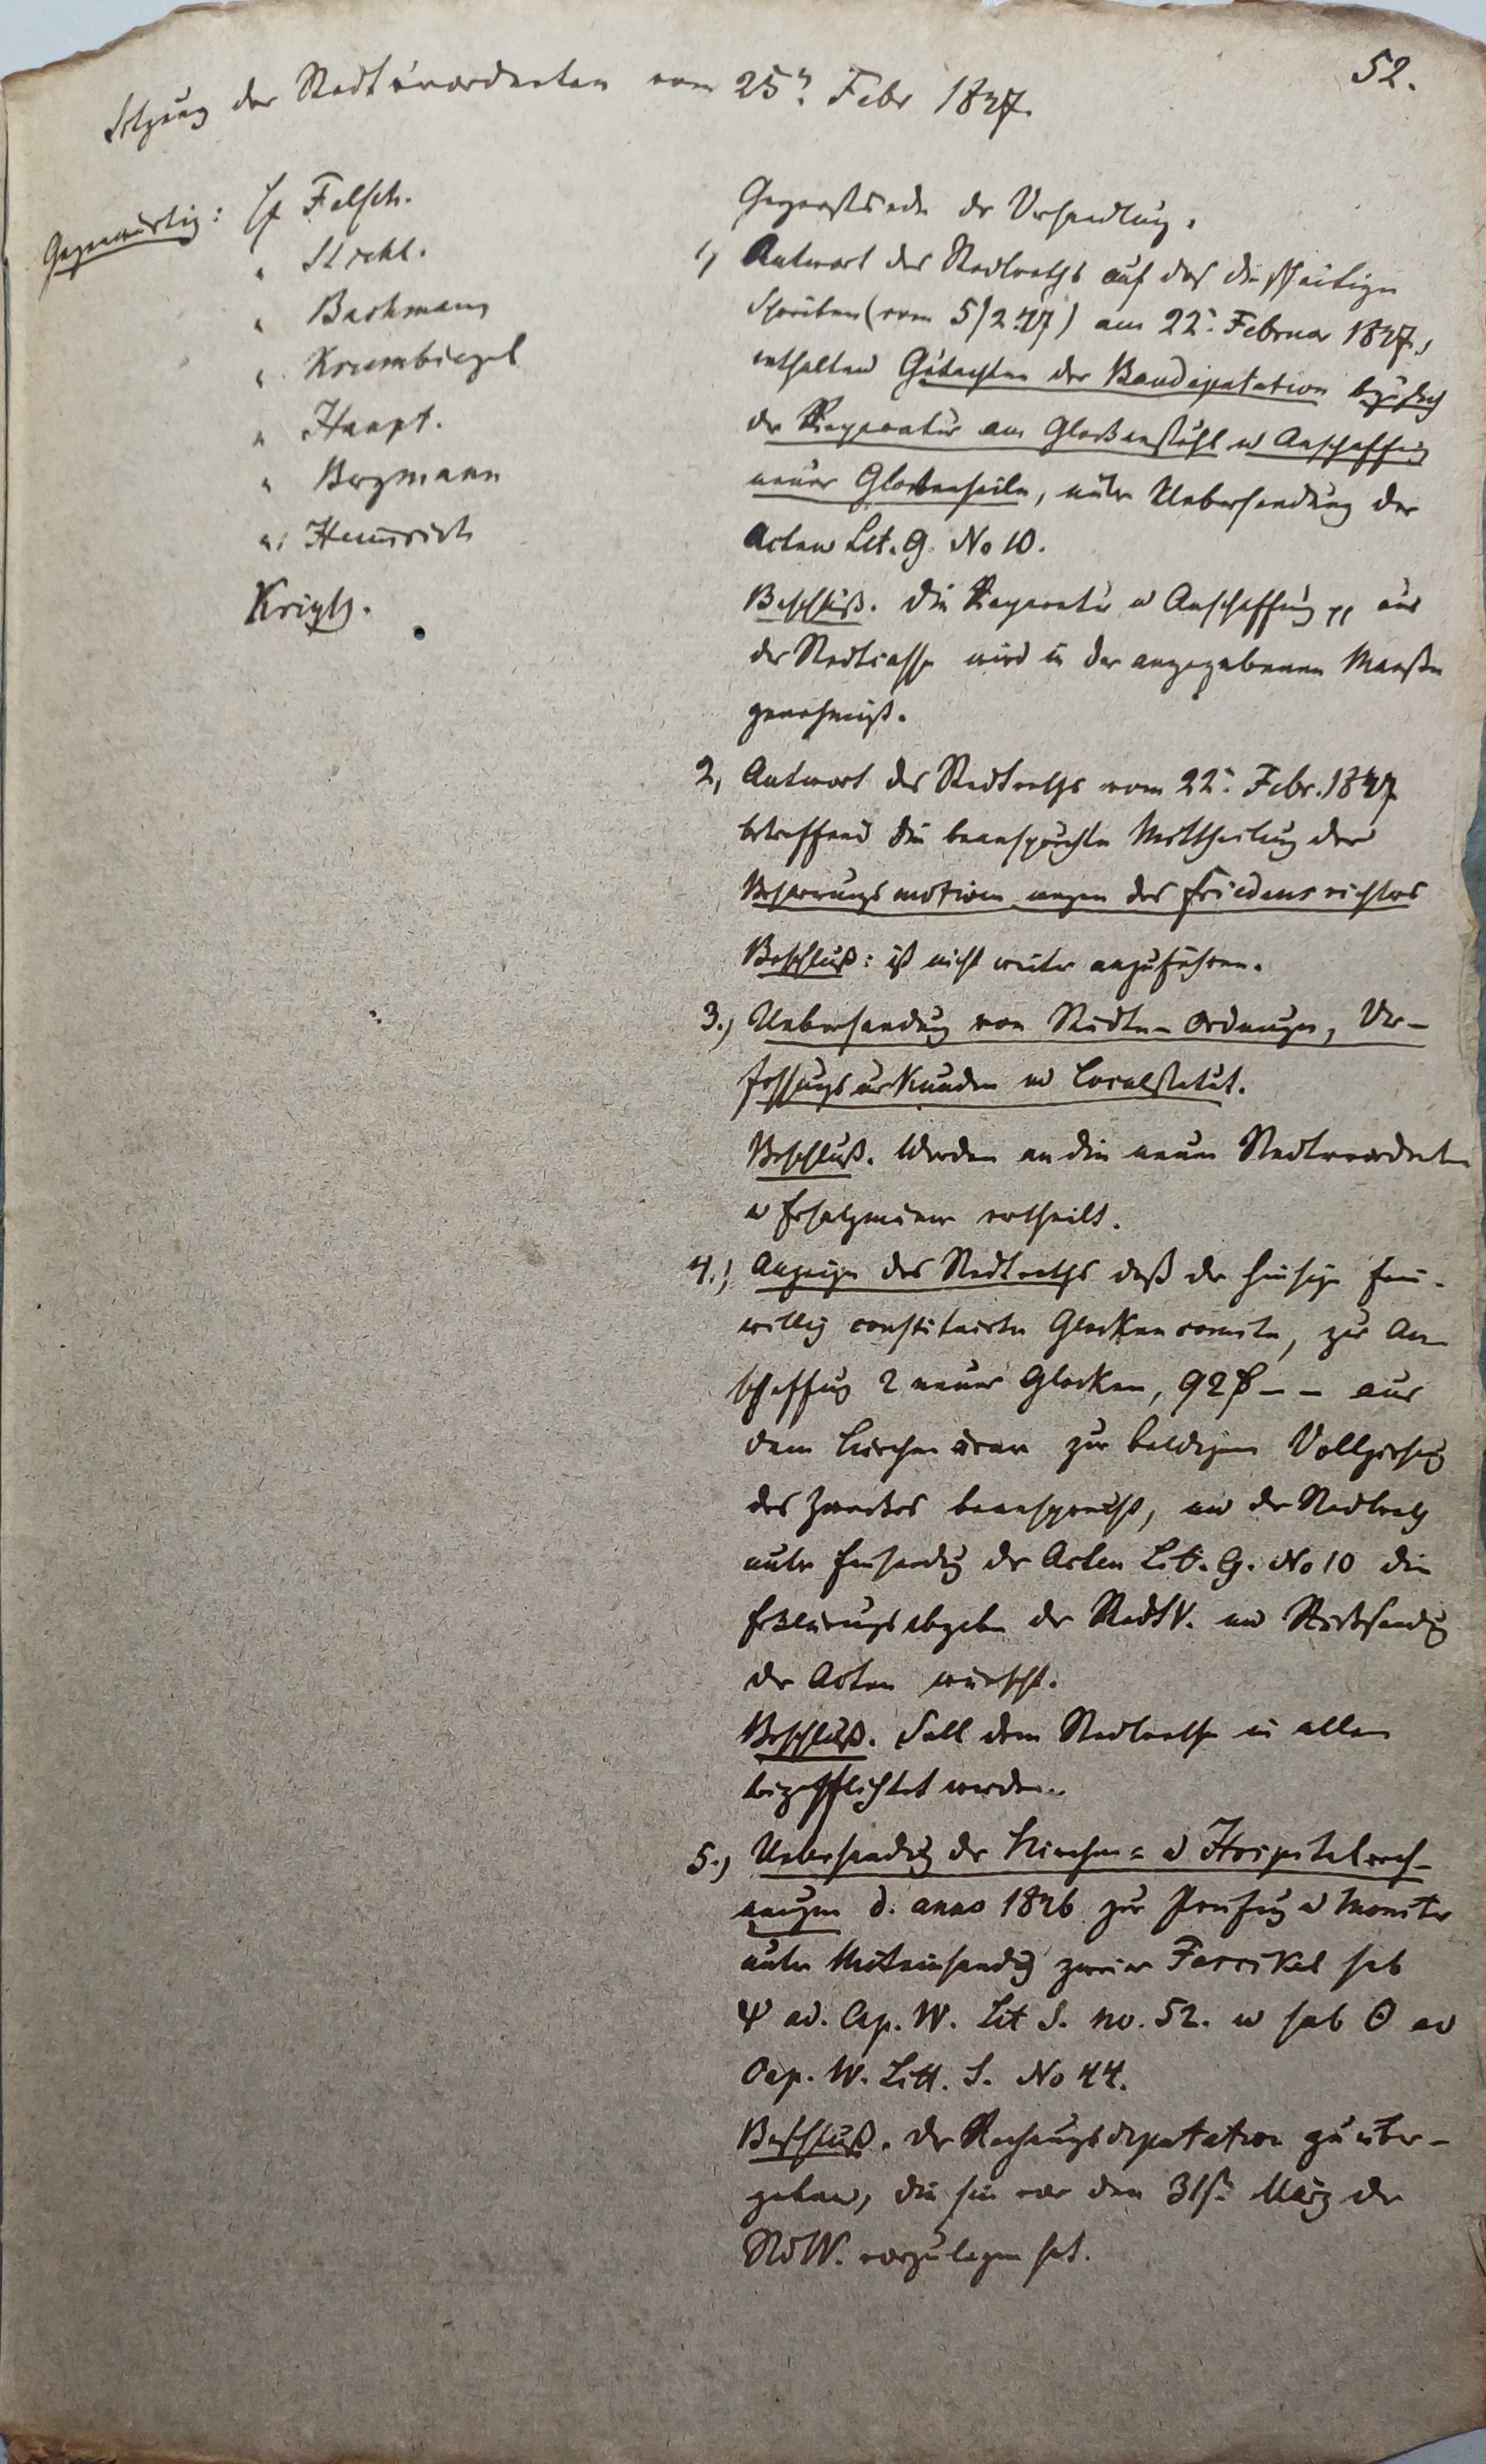 52.
Sitzung der Stadtverordneten vom 25n. Febr 1847.
Gegenwärtig: H Felsch.
" Stickl.
" Bachmann
" Krumbiegel
" Haupt.
" Bergmann
" Heinrich
Gegenstände der Verhandlung.
1, Antwort des Stadtraths auf das diesseitige
Schreiben (vom 5/2 47) am 22n. Februar 1847.,
enthaltend Gutachten der Baudeputation bezüglich
der Reparatur am Glockenstuhl u Anschaffung
neuer Glockenseile, unter Uebersendung der
Acten Lit. G. No 10.
Beschluß. Die Reparatur u Anschaffung aus
der Stadtcasse wird in der angegebenen Maaße
genehmigt.
2, Antwort des Stadtraths vom 22n. Febr. 1847
betreffend die beanspruchte Mittheilung der
wegen des Friedensrichters
Beschluß: ist nicht weiter anzuführen.
3., Uebersendung von Städte-Ordnungen, Ver-
fassungsurkunden u Localstatut.
Beschluß. Werden an die neuen Stadtverordneten
u Ersatzmänner vertheilt.
4., Anzeige des Stadtraths daß der hiesige frei-
willig constituirte Glockencomite, zur An-
schaffung 2 neuer Glocken, 92 ₰ – – aus
dem Kirchenärar zur baldigen Vollziehung
des Zweckes beansprucht, und der Stadtrath
unter Einsendung der Acten Lit. G. No 10 die
Erklärungsabgabe der StadtV. und Rücksendung
der Acten wünscht.
Beschluß. Soll dem Stadtrathe in allem
beigepflichtet werden.
5., Uebersendung der Kirchen- u Hospitalrech-
nungen d. anno 1846 zur Prüfung u Monitur
unter Miteinsendung zweier Fascikel sub
Ψ ad. Cap. W. Lit S. no. 52. u sub Θ ad
Cap. W. Litt. S. No 44.
Beschluß. Der Rechnungsdeputation zu über-
geben, die sie vor den 31st. März der
StdtV. vorzulegen hat.